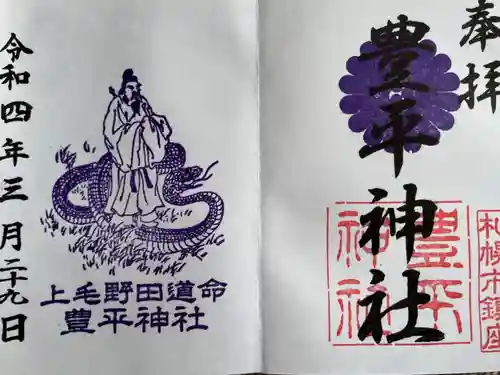 奉拝
豊平神社
札幌市鎮座
豊平神社
上毛野田道命
豊平神社
令和四年三月二十九日